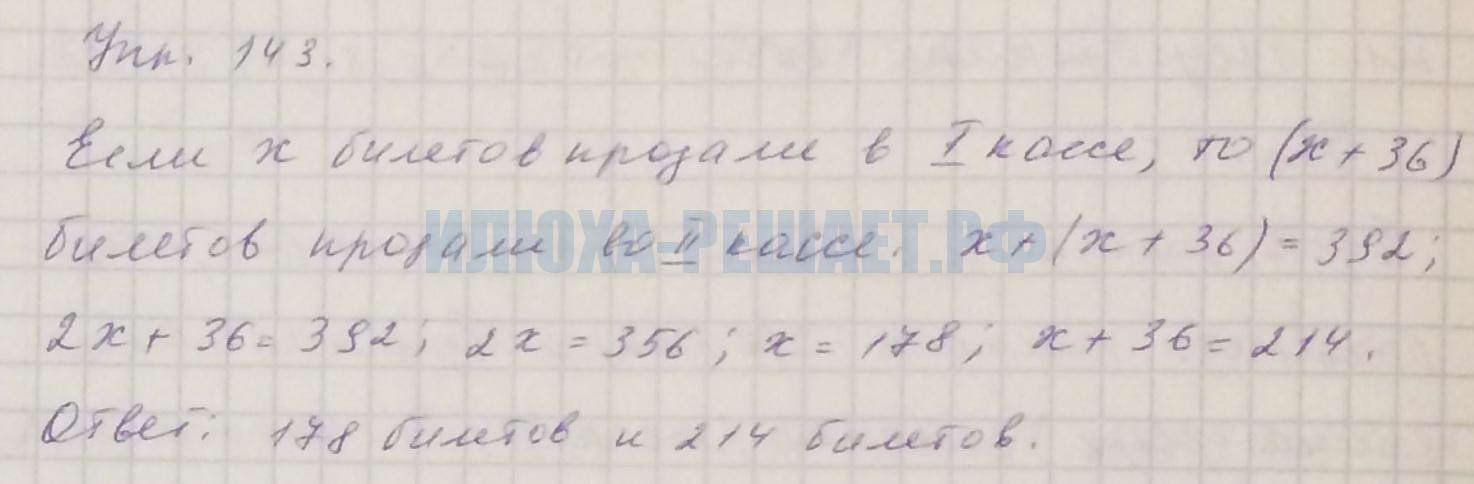 Упр. 143.
Если x билетов продали в I кассе, то (x + 36)
билетов продали во II кассе. x + (x + 36) = 392;
ИЛЮХА-РЕШАЕТ.РФ
2x + 36 = 392; 2x = 356; x = 178; x + 36 = 214.
Ответ: 178 билетов и 214 билетов.